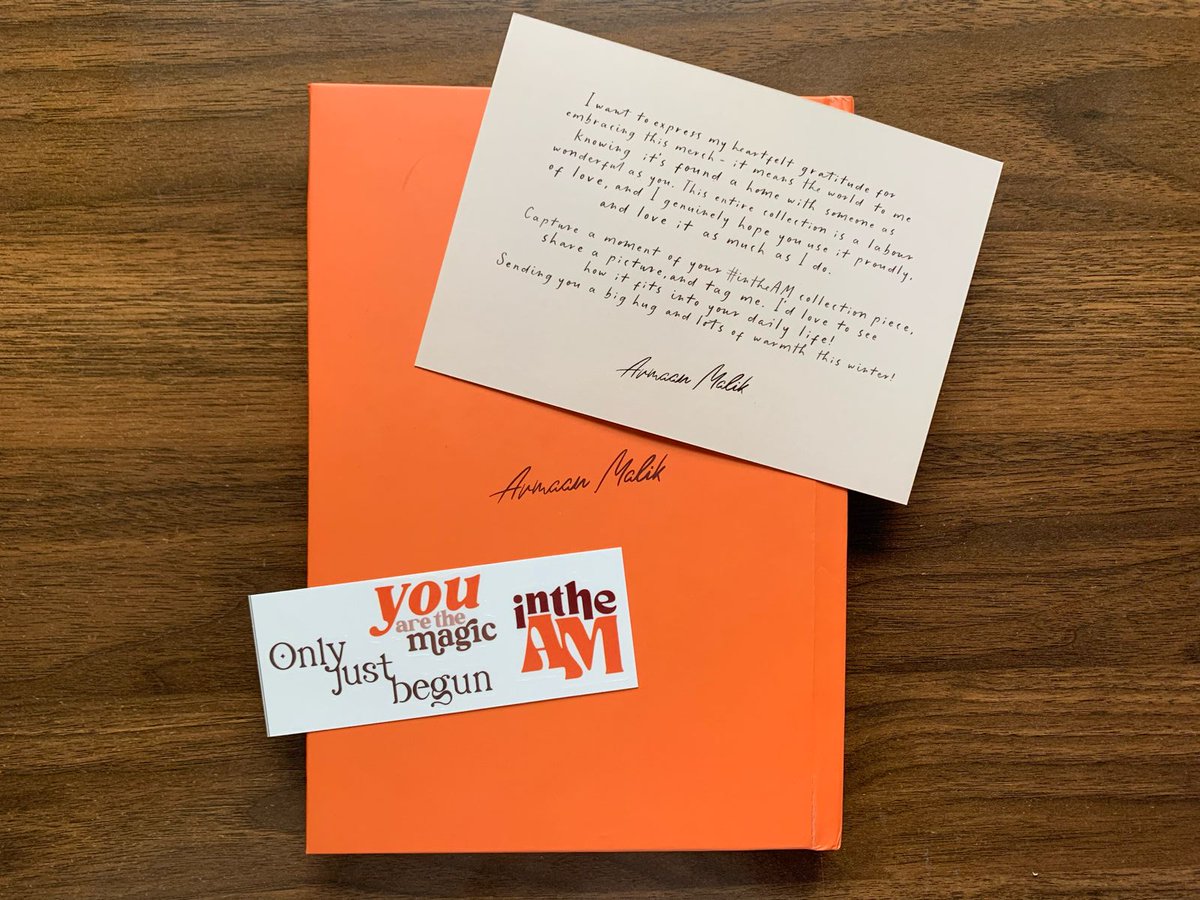 I want to express my heartfelt gratitude for
embracing this merch - it means the world to me
knowing it's found a home with someone as
wonderful as you. This entire collection is a labour
of love, and I genuinely hope you use it proudly,
and love it as much as I do.
Capture a moment of your #intheAM collection piece,
share a picture, and tag me. I'd love to see
how it fits into your daily life!
Sending you a big hug and lots of warmth this winter!
Armaan Malik
Armaan Malik
you
are the
magic
Only
just
begun
inthe
AM